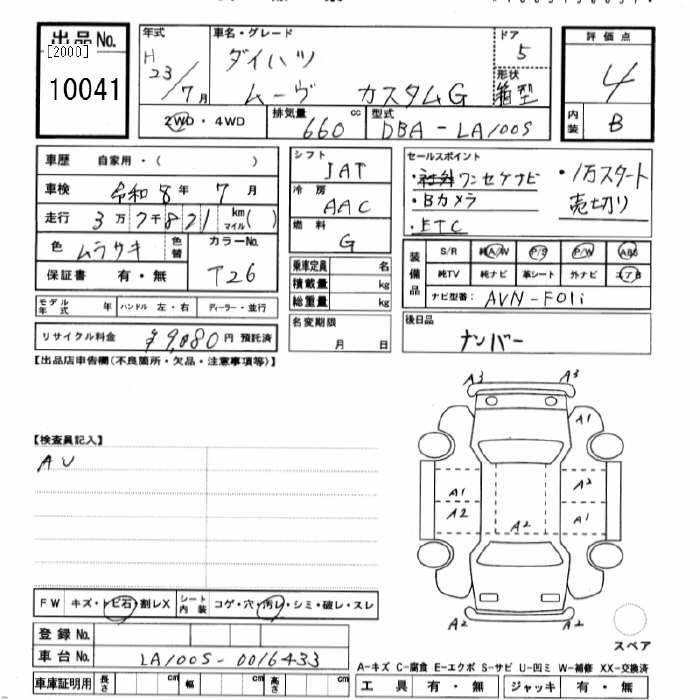 出品No.
[2000]
10041
年式
H
23/7月
車名・グレード
ダイハツ
ムーヴ カスタムG
ドア
5
形状
箱型
評価点
4
内装
B
2WD・4WD
排気量
660 cc
型式
DBA-LA100S
車歴 自家用・( )
車検 令和8年7月
走行 3万7千821 km マイル( )
色 ムラサキ 色替
カラーNo.
T26
保証書 有・無
モデル年式 年 ハンドル 左・右 ディーラー・並行
リサイクル料金 ¥9,080円 預託済
シフト
IAT
冷房
AAC
燃料
G
乗車定員 名
積載量 kg
総重量 kg
名変期限
月 日
セールスポイント
・社外ワンセグナビ
・Bカメラ
・ETC
・1万スタート
売切り
装備品
S/R 純A/W P/S P/W ABS
純TV 純ナビ 革シート 外ナビ エアB
ナビ型番: AVN-F01i
後日品
ナンバー
【出品店申告欄(不良箇所・欠品・注意事項等)】
【検査員記入】
AU
A3 A3
A1
A1 A2
A2 A1
A2
A2 A2
スペア
FW キズ・トビ石・割レX
シート内装 コゲ・穴・汚レ・シミ・破レ・スレ
登録No.
車台No. LA100S-0016433
車庫証明用 長さ cm 幅 cm 高さ cm
A-キズ C-腐食 E-エクボ S-サビ U-凹ミ W-補修 XX-交換済
工具 有・無 ジャッキ 有・無